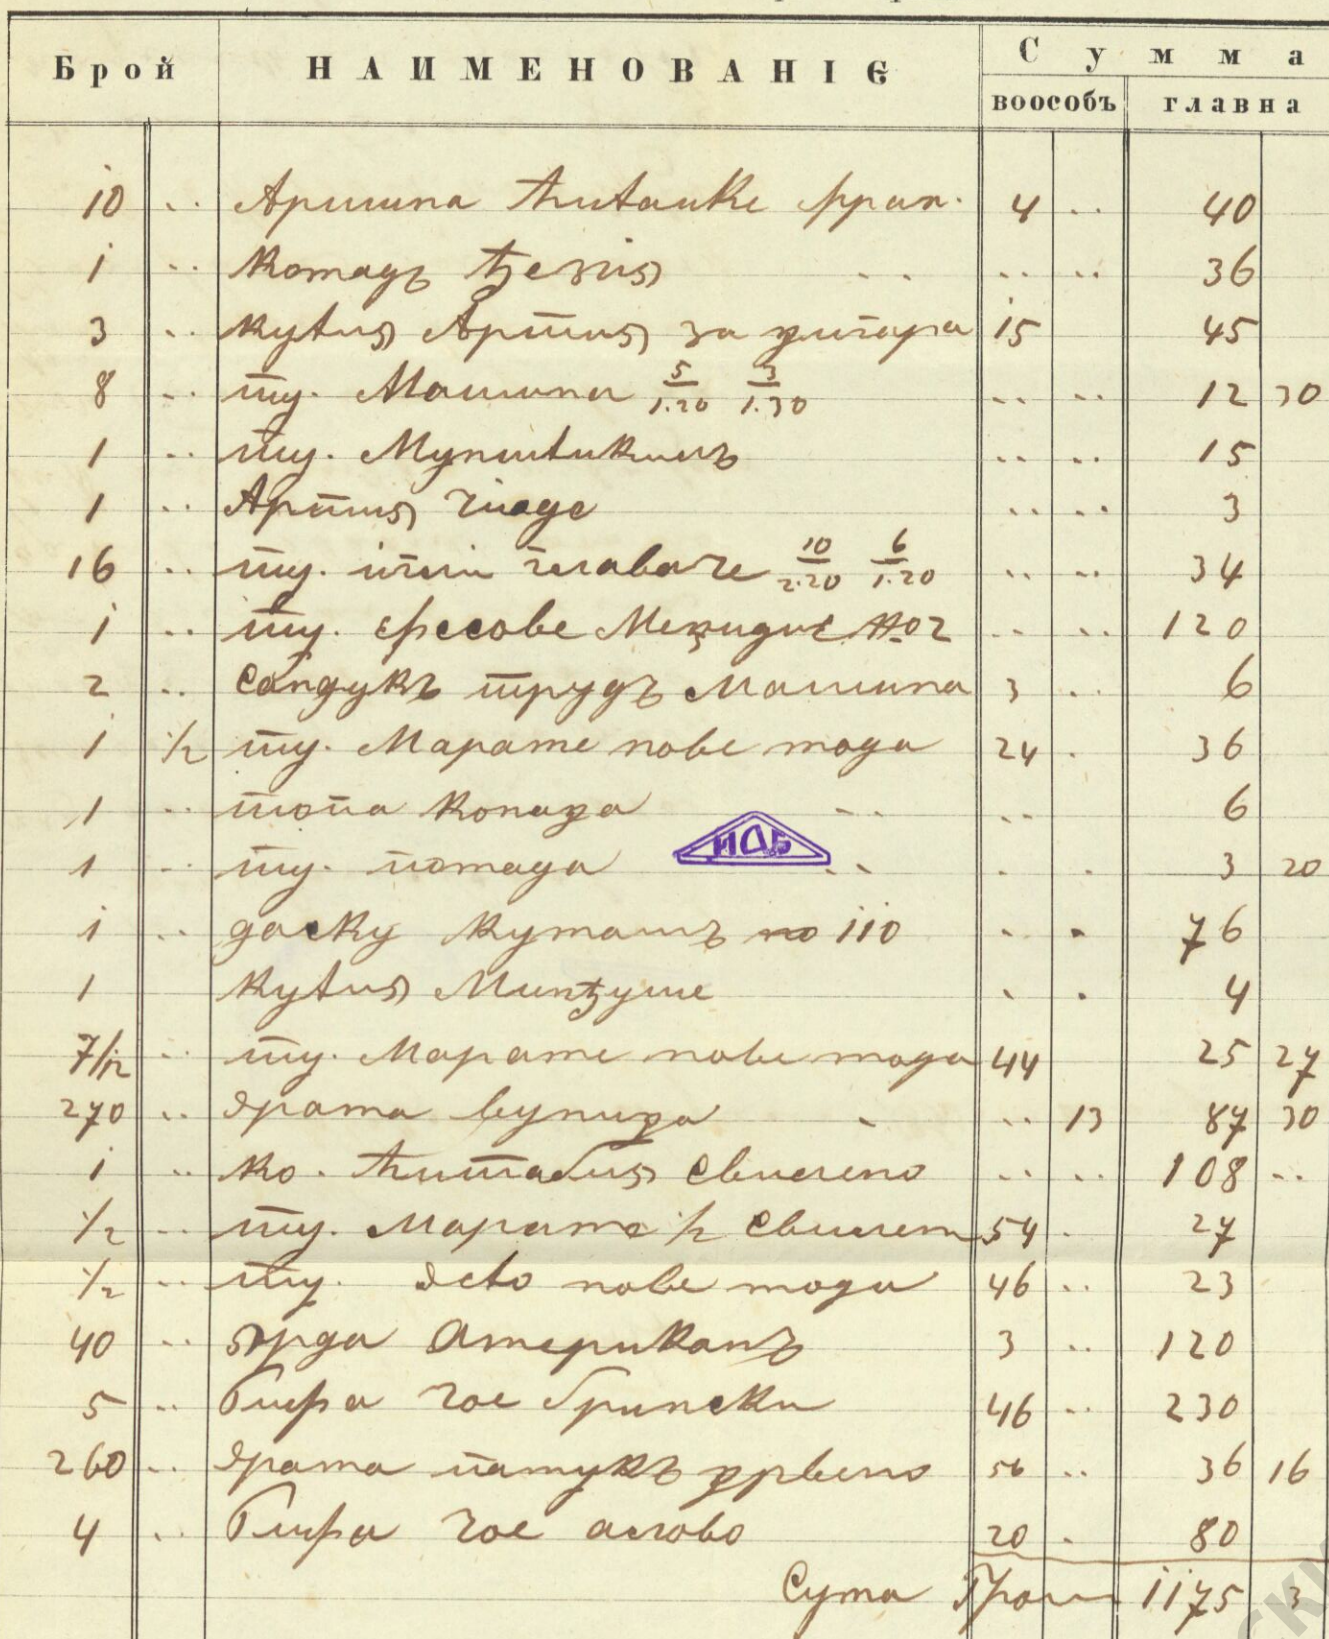 Брой НАИМЕНОВАНІЄ Сумма
воособъ главна
10 .. Аршина ћитайке фран. 4 .. 40
1 .. комадъ ђезія .. .. .. 36
3 .. кутия Артия за цигара 15 45
8 .. ту. Машина 5/1.20 3/1.30 .. .. 12 30
1 .. ту. Мунштиклъ .. .. 15
1 .. Артия .. .. 3
16 .. ту. главаче 10/2.20 6/1.20 .. .. 34
1 .. ту. фесове Меџидие No 2 .. .. 120
2 .. Сандукъ трудъ Машина 3 .. 6
1 1/2 ту. Мараме нове мода 24 . 36
1 .. топа конаца .. .. 6
1 .. ту. помада .. . . 3 20
1 .. даску кумашъ но 110 . . 76
1 кутия Минђуше . . 4
7/12 .. ту. Мараме нове мода 44 25 27
270 .. драма вуница . .. 13 87 30
1 .. ко. ћитабия свилено .. .. 108 ..
1/2 .. ту. Мараме 1/2 свилен 54 . 27
1/2 .. ту. дето нове мода 46 .. 23
40 .. ярда Американъ 3 .. 120
5 .. Рифа чое брински 46 .. 230
260 .. драма памукъ црвено 56 .. 36 16
4 .. Рифа чое алово 20 . 80
Сума Грош 1175 3
ИДБ